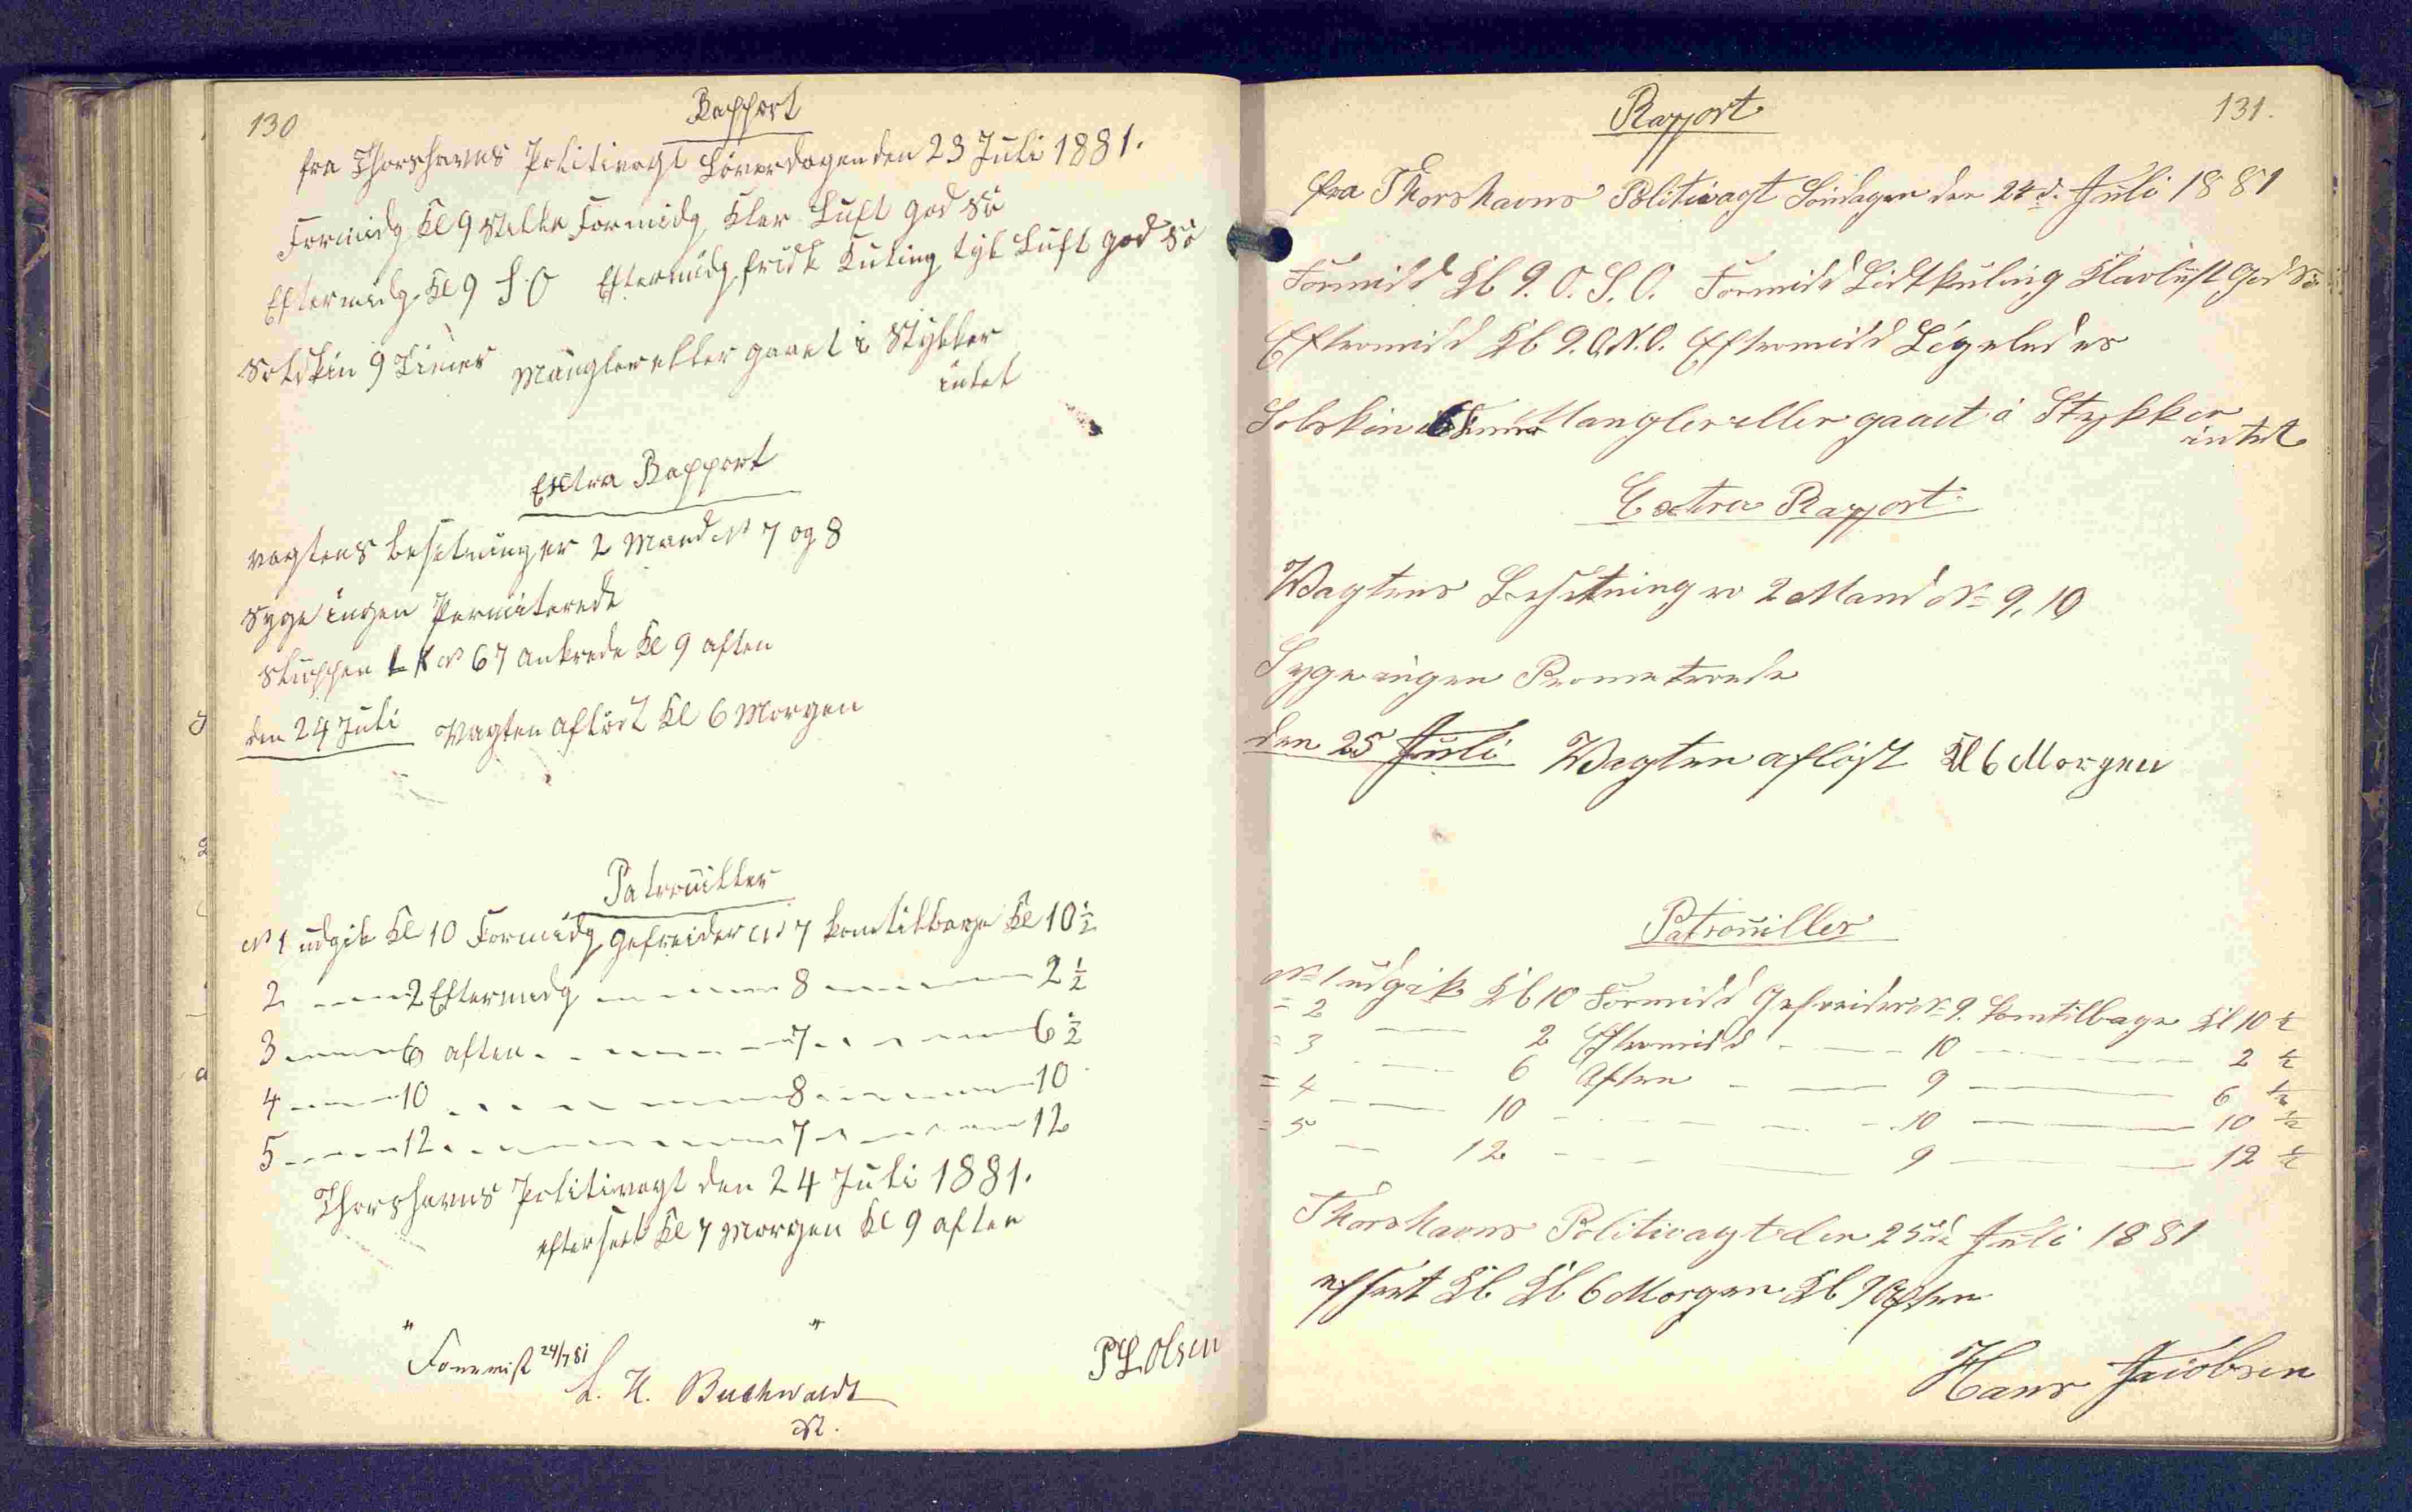 130
Rapport
fra Thorshavns Politivagt Löverdagen den 23 Juli 1881.
Formidg Kl 9 Stille Formidg Klar Luft god Sö
Eftermidg Kl 9 S.O Eftermidg frisk Kuling tyk Luft god Sö
Solskin 9 Timer Mangler eller gaaet i Stykker
intet
Extra Rapport
vagtens besetning er 2 Mand No 7 og 8
Syge ingen Permiterede
Sluppen No 67 ankrede Kl 9 aften
den 24 Juli Vagten aflöst Kl 6 Morgen
Patrouiller
No 1 udgik Kl 10 Formidg Gefreider No 7 kom tilbage Kl 10½
2 2 Eftermidg 8 2½
3 6 aften 7 6½
4 10 8 10
5 12 7 12
Thorshavns Politivagt den 24 Juli 1881.
efterseet Kl 7 Morgen Kl 9 aften
" "
Foreviist 24/7 81
L. H. Buchwaldt
P L Olsen
131.
Rapport
fra Thorshavns Politivagt Söndagen den 24d. Juli 1881
Formidd Kl 9. O.S.O. Formidd Lidt kuling Klarluft God Sö
Eftermidd Kl 9. O.N.O. Eftermidd Ligeledes
Solskin 6 Timer Mangler eller gaaet i Stykker
intet
Extra Rapport
Wagtens Besetning er 2 Mand No 9, 10
Syge ingen Prometerede
den 25 Juli Wagten aflöst Kl 6 Morgen
Patrouiller
No 1 udgik Kl 10 Formidd Gefreider No 9. kom tilbage Kl 10 ½
= 2 2 Eftermidd 10 2 ½
= 3 6 Aften 9 6 ½
= 4 10 10 10 ½
= 5 12 9 12 ½
Thorshavns Politivagt den 25de Juli 1881
efseet Kl Kl 6 Morgen Kl 9 Aften
Hans Jacobsen